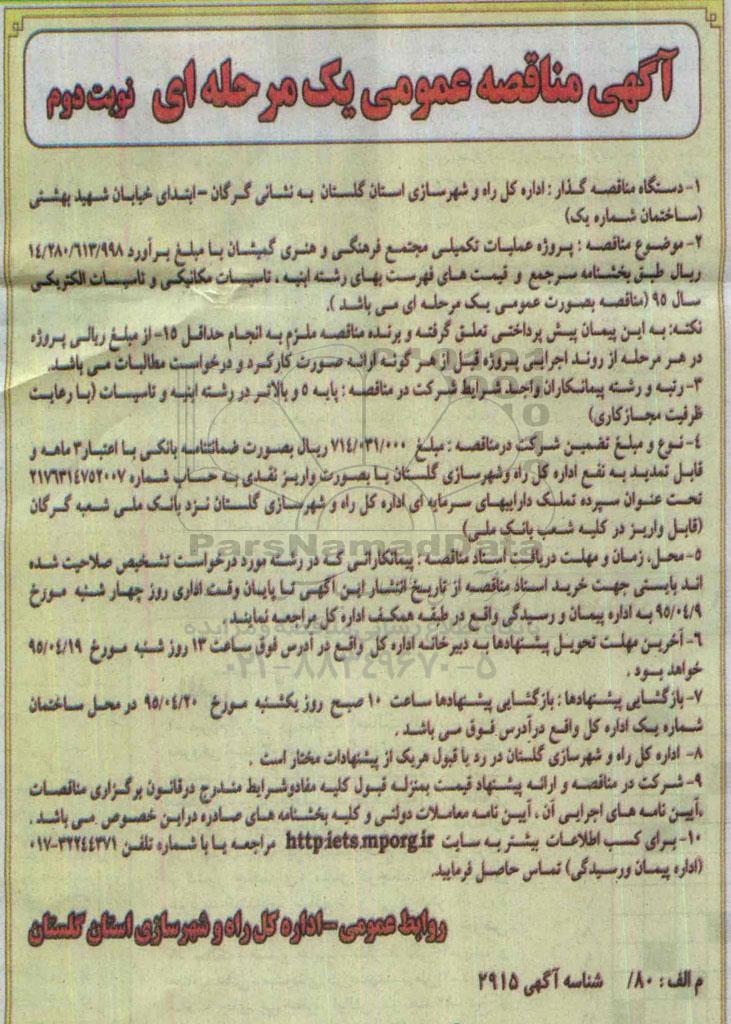 آگهی مناقصه عمومی یک مرحله ای نوبت دوم
۱- دستگاه مناقصه گذار : اداره کل راه و شهرسازی استان گلستان به نشانی گرگان –ابتدای خیابان شهید بهشتی
(ساختمان شماره یک)
۲- موضوع مناقصه : پروژه عملیات تکمیلی مجتمع فرهنگی و هنری گمیشان با مبلغ برآورد ۱۴/۲۸۰/۶۱۳/۹۹۸
ریال طبق بخشنامه سرجمع و قیمت های فهرست بهای رشته ابنیه ، تاسیسات مکانیکی و تاسیسات الکتریکی
سال ۹۵ (مناقصه بصورت عمومی یک مرحله ای می باشد ).
نکته: به این پیمان پیش پرداختی تعلق گرفته و برنده مناقصه ملزم به انجام حداقل ۱۵- از مبلغ ریالی پروژه
در هر مرحله از روند اجرایی پروژه قبل از هر گونه ارائه صورت کارکرد و درخواست مطالبات می باشد.
۳- رتبه و رشته پیمانکاران واجد شرایط شرکت در مناقصه : پایه ۵ و بالاتر در رشته ابنیه و تاسیسات (با رعایت
ظرفیت مجازکاری)
۴- نوع و مبلغ تضمین شرکت درمناقصه : مبلغ ۷۱۴/۰۳۱/۰۰۰ ریال بصورت ضمانتنامه بانکی با اعتبار۳ ماهه و
قابل تمدید به نفع اداره کل راه وشهرسازی گلستان یا بصورت واریز نقدی به حساب شماره ۲۱۷۶۳۱۴۷۵۲۰۰۷
تحت عنوان سپرده تملک داراییهای سرمایه ای اداره کل راه و شهرسازی گلستان نزد بانک ملی شعبه گرگان
(قابل واریز در کلیه شعب بانک ملی)
ParsNamadData
۵- محل، زمان و مهلت دریافت اسناد مناقصه : پیمانکارانی که در رشته مورد درخواست تشخیص صلاحیت شده
اند بایستی جهت خرید اسناد مناقصه از تاریخ انتشار این آگهی تا پایان وقت اداری روز چهار شنبه مورخ
۹۵/۰۴/۹ به اداره پیمان و رسیدگی واقع در طبقه همکف اداره کل مراجعه نمایند .
۶- آخرین مهلت تحویل پیشنهادها به دبیرخانه اداره کل واقع در آدرس فوق ساعت ۱۳ روز شنبه مورخ ۹۵/۰۴/۱۹
۰۲۱-۸۸۳۴۹۶۷۰-۵
خواهد بود .
۷- بازگشایی پیشنهادها : بازگشایی پیشنهادها ساعت ۱۰ صبح روز یکشنبه مورخ ۹۵/۰۴/۲۰ در محل ساختمان
شماره یک اداره کل واقع درآدرس فوق می باشد .
۸- اداره کل راه و شهرسازی گلستان در رد یا قبول هریک از پیشنهادات مختار است .
۹- شرکت در مناقصه و ارائه پیشنهاد قیمت بمنزله قبول کلیه مفادوشرایط مندرج درقانون برگزاری مناقصات
،آیین نامه های اجرایی آن ، آیین نامه معاملات دولتی و کلیه بخشنامه های صادره دراین خصوص می باشد .
۱۰- برای کسب اطلاعات بیشتر به سایت http:iets.mporg.ir مراجعه یا با شماره تلفن ۳۲۲۴۴۳۷۱-۰۱۷
(اداره پیمان ورسیدگی) تماس حاصل فرمایید.
روابط عمومی –اداره کل راه و شهرسازی استان گلستان
م الف : ۸۰/ شناسه آگهی ۲۹۱۵